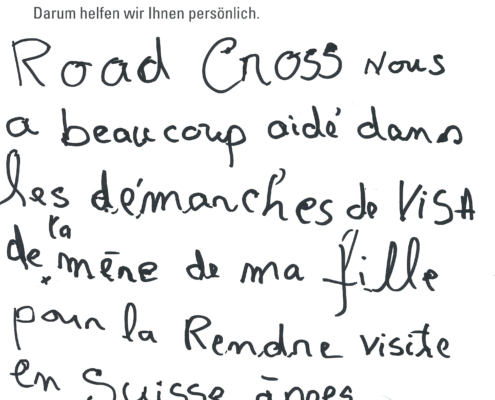 Darum helfen wir Ihnen persönlich.
Road Cross Nous
a beaucoup aidé dans
les démarches de ViSA
de la mère de ma fille
pour la Rendre visite
en Suisse après